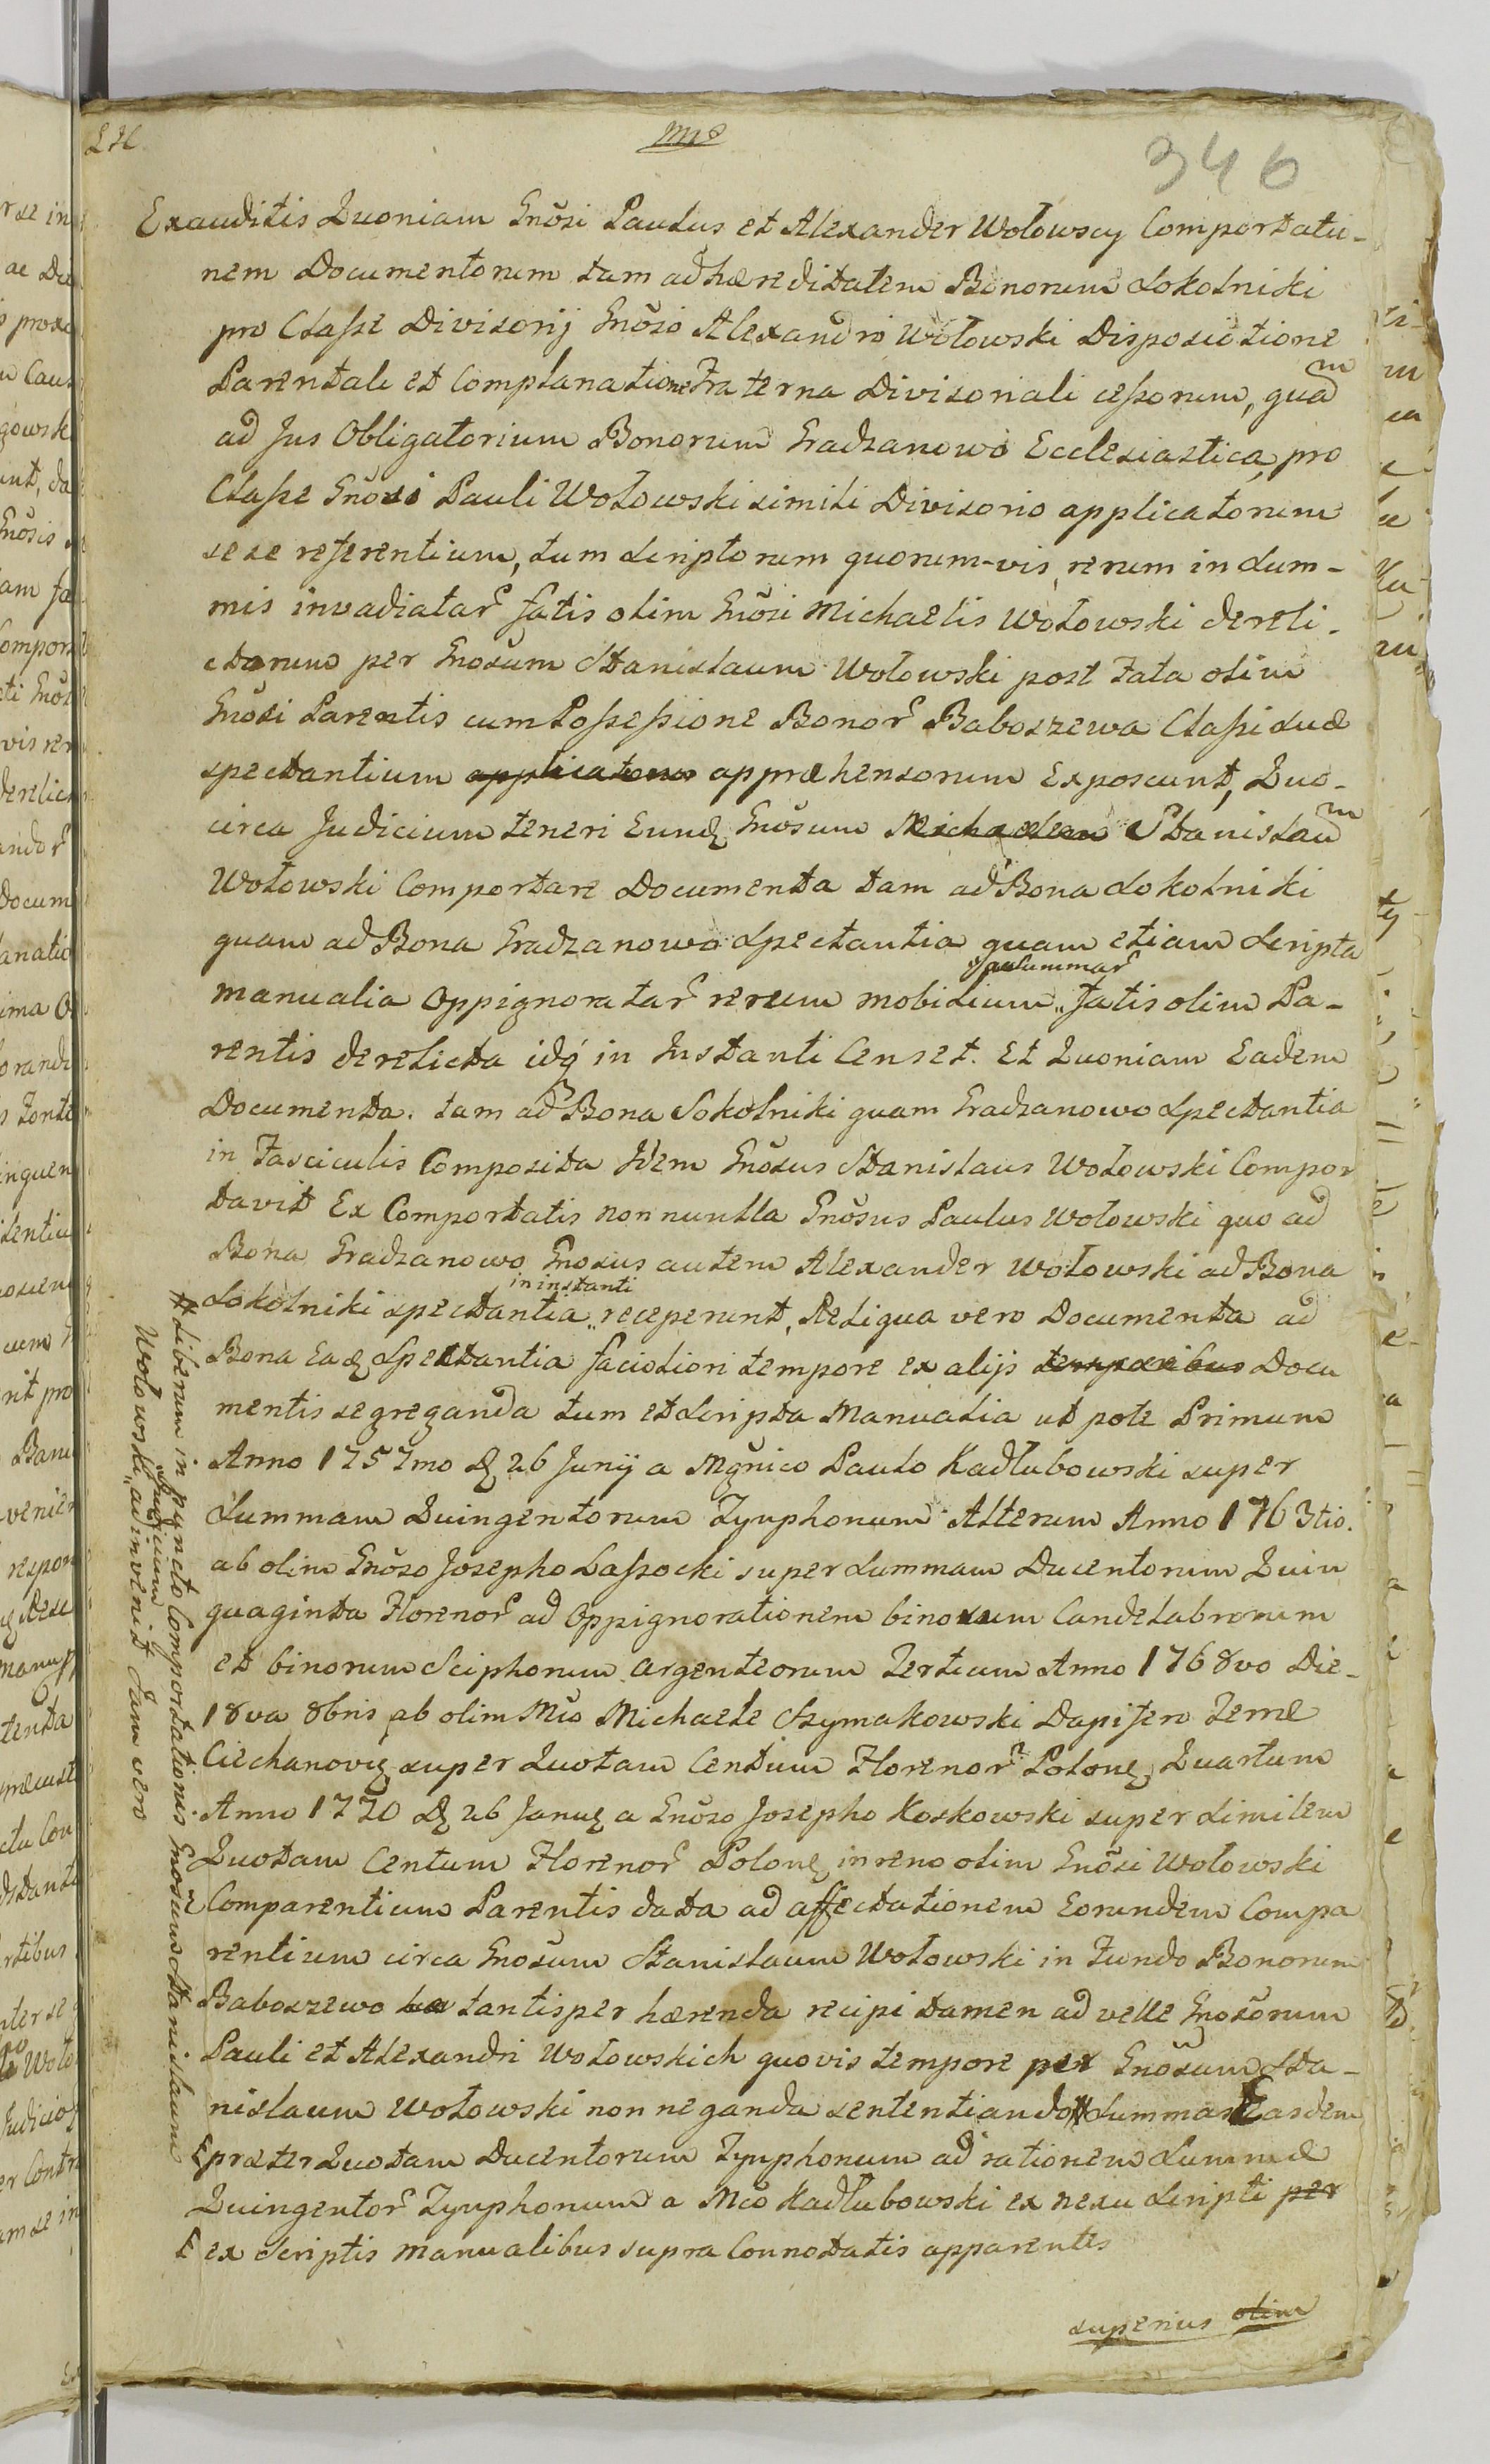 346
Exauditis Quoniam Gnõsi Paulus et Alexander Wołowscy Comportatio-
nem Documentorum tam ad hæreditatem Bonorum Sokolniki
pro Classe Divisorij Gnõso Alexandro Wołowski Dispositione
Parentali et Complanatione Fraterna Divisoriali cessorum, quam
ad Jus Obligatorium Bonorum Gradzanowo Ecclesiastica, pro
Classe Gnõsi Pauli Wołowski simili Divisorio applicatorum
sese referentium, tum Scriptorum quorum-vis, rerum in Sum-
mis invadiatar̃ fatis olim Gnõsi Michaelis Wołowski dereli-
ctarum per Gnosum Stanislaum Wołowski post Fata olim
Gnõsi Parentis cum Possessione Bonor̃ Baboszewa Classi suæ
spectantium applicatorum appræhensorum Exposcunt, Quo-
circa Judicium teneri Eund Gnõsum Michaelem Stanislaum
Wołowski Comportare Documenta tam ad Bona Sokolniki
quam ad Bona Gradzanowo Spectantia quam etiam Scripta
manualia Oppignoratar̃ rerum mobilium, fatis olim Pa-
rentis derelicta idq in Instanti Censet. Et Quoniam Eadem
Documenta. tam ad Bona Sokolniki quam Gradzanowo Spectantia
in Fasciculis Composita Idem Gnõsus Stanislaus Wołowski Compor
tavit Ex Comportatis nonnunlla Gnõsus Paulus Wołowski quo ad
Bona Gradzanowo Gnosus autem Alexander Wołowski ad Bona
in instanti
Sokolniki spectantia,, receperunt, Reliqua vero Documenta ad
Bona Ead Spectantia faciotiori tempore ex alijs temporibus Docu
mentis segreganda tum et Scripta Manualia ut pote Primum
Anno 1757mo d 26 Junij a Mgnico Paulo Kadłubowski super
Summam Quingentorum Tynphonum Alterum Anno 1763tio.
ab olim Gnõso Josepho Lassocki super Summam Ducentorum Quin
quaginta Florenor̃ ad Oppignorationem binorum Candelabrorum
et binorum Sciphorum argenteorum Tertium Anno 1768vo Die-
18va 8bris ab olim Mco Michaele Szymakowski Dapifero Terræ
Ciechanovię super Quotam Centum Florenor̃ Polonę, Quartum
Anno 1770 d 26 Januę a Gnõso Josepho Koskowski super similem
Quotam Centum Florenor̃ Polonę in reno olim Gnõsi Wołowski
Comparentium Parentis data ad affectationem Eorundem Compa
rentium circa Gnosum Stanislaum Wołowski in Fundo Bonorum
Baboszewo tantisper hærenda recipi tamen ad velle Gnosorum
Pauli et Alexandri Wołowskich quovis tempore per Gnõsum Sta-
nislaum Wołowski non neganda sententiando # Summas Easdem
præter Quotam Ducentorum Tynphonum ad rationem Summæ
Quingentor̃ Tynphonum a Mco Kadłubowski ex nexu Scripti per
ex Scriptis manualibus supra Connotatis apparentes
superius olim
# Liberum in pyncto Comportationis Gnosum Stanislaum
Judicium
Wołowski,, adinvenit Jam vero